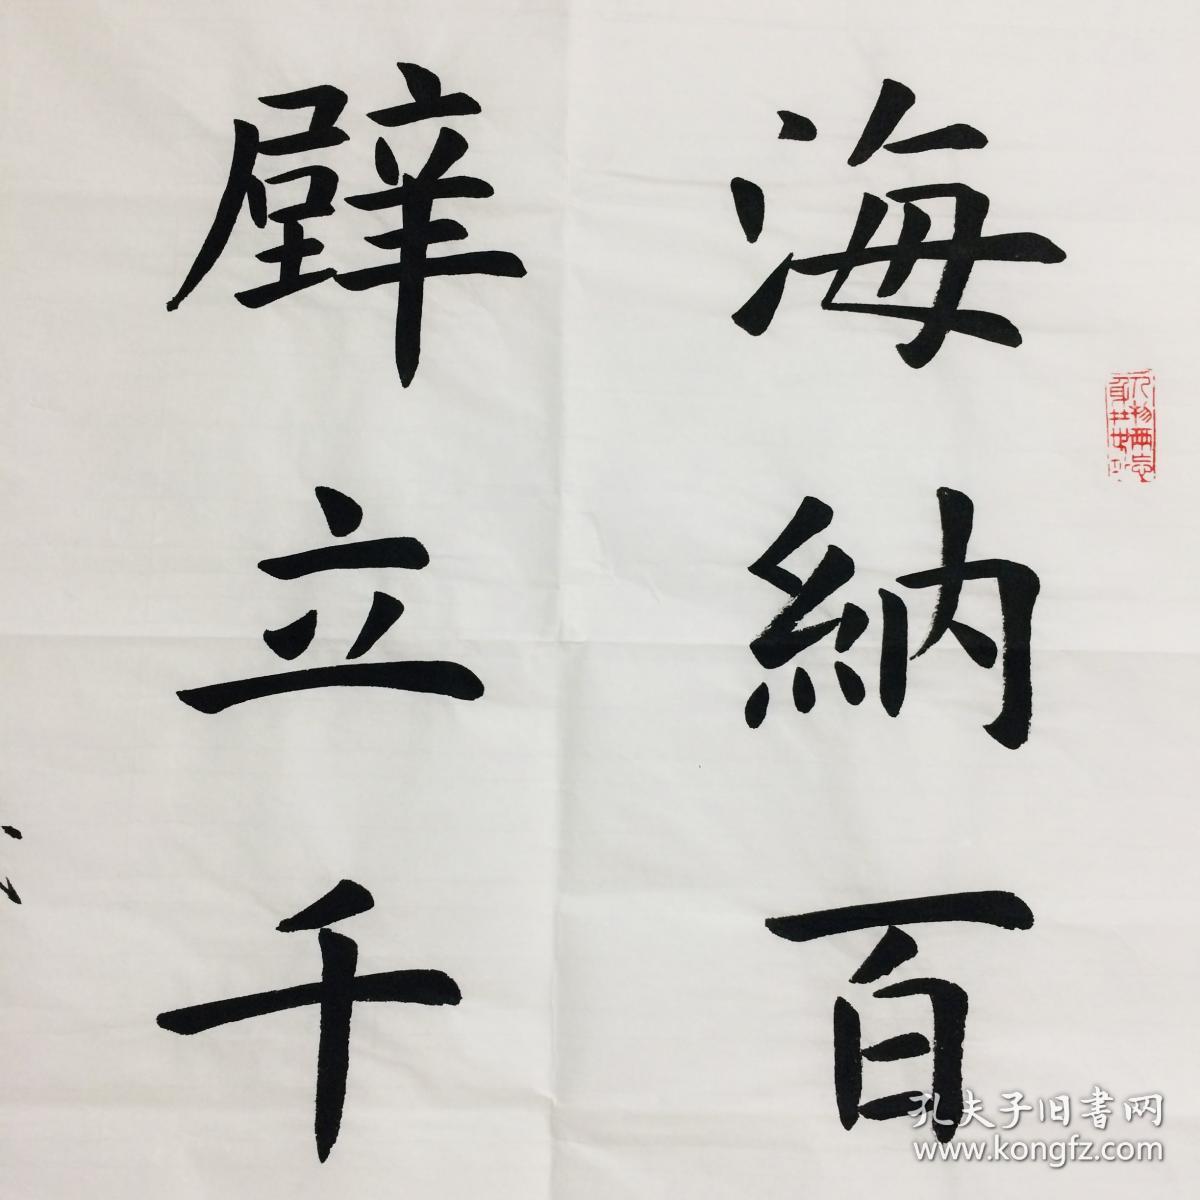 海納百
壁立千
孔夫子旧書网
www.kongfz.com